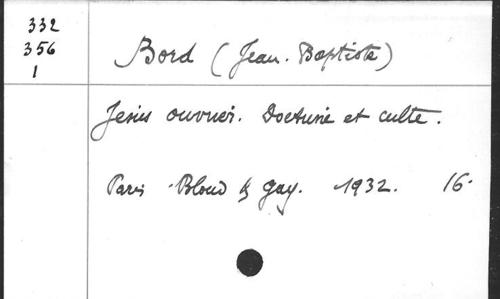 332
356
1
Bord (Jean-Baptiste)
Jésus ouvrier. Doctrine et culte.
Paris Bloud & Gay. 1932. 16°